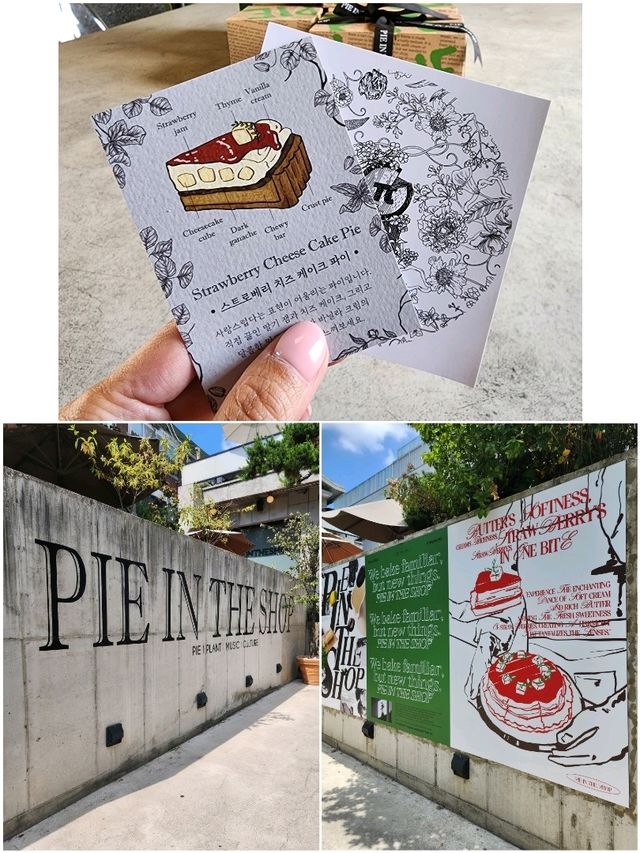 PIE IN
Vanilla
Thyme cream
Strawberry
jam
Cheesecake
cube
Dark
ganache
Chewy
bar
Crust pie
Strawberry Cheese Cake Pie
• 스트로베리 치즈 케이크 파이 •
사랑스럽다는 표현이 어울리는 파이입니다.
직접 끓인 딸기 잼과 치즈 케이크, 그리고
바닐라 크림의
느껴보세요.
PIE IN THE SHOP
PIE | PLANT | MUSIC | CULTURE
PIE
IN
THE
SHOP
We bake familiar,
but new things.
PIE IN THE SHOP
We bake familiar,
but new things.
PIE IN THE SHOP
We bake familiar,
but new things.
PIE IN THE SHOP
BUTTER'S SOFTNESS,
CREAM'S RICHNESS, STRAWBERRY'S
ONE BITE
EXPERIENCE THE ENCHANTING
DANCE OF SOFT CREAM
AND RICH BUTTER
THE FRESH SWEETNESS
PIE IN THE SHOP